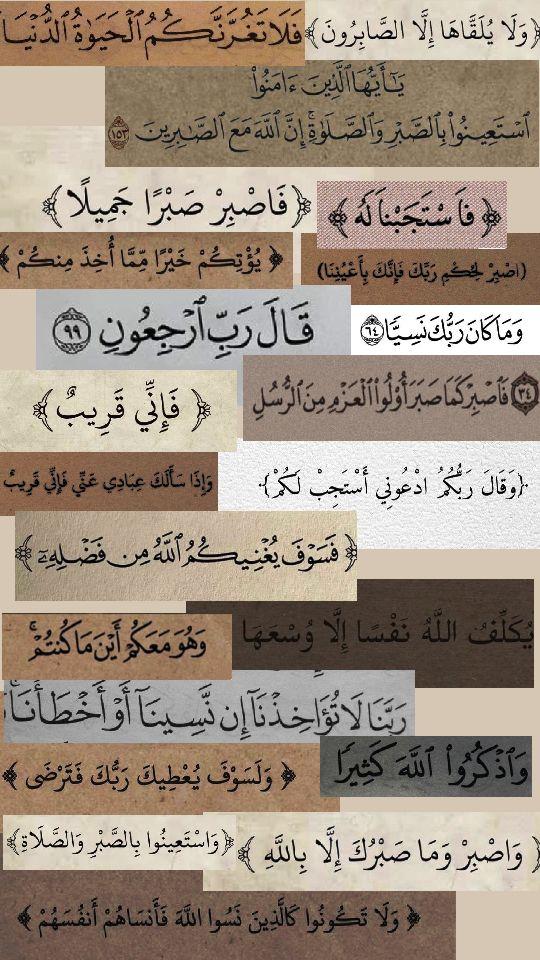 ﴿وَلَا يُلَقَّاهَا إِلَّا الصَّابِرُونَ﴾
فَلَا تَغُرَّنَّكُمُ ٱلْحَيَوٰةُ ٱلدُّنْيَا
يَٰٓأَيُّهَا ٱلَّذِينَ ءَامَنُوا۟
ٱسْتَعِينُوا۟ بِٱلصَّبْرِ وَٱلصَّلَوٰةِ ۚ إِنَّ ٱللَّهَ مَعَ ٱلصَّٰبِرِينَ ١٥٣
﴿فَاصْبِرْ صَبْرًا جَمِيلًا﴾
﴿فَاسْتَجَبْنَا لَهُ﴾
﴿يُؤْتِكُمْ خَيْرًا مِّمَّا أُخِذَ مِنكُمْ﴾
(اصْبِرْ لِحُكْمِ رَبِّكَ فَإِنَّكَ بِأَعْيُنِنَا)
قَالَ رَبِّ ٱرْجِعُونِ ٩٩
وَمَا كَانَ رَبُّكَ نَسِيًّا ٦٤
٣٤ فَٱصْبِرْ كَمَا صَبَرَ أُو۟لُوا۟ ٱلْعَزْمِ مِنَ ٱلرُّسُلِ
﴿فَإِنِّي قَرِيبٌ﴾
وَإِذَا سَأَلَكَ عِبَادِي عَنِّي فَإِنِّي قَرِيبٌ
﴿وَقَالَ رَبُّكُمُ ادْعُونِي أَسْتَجِبْ لَكُمْ﴾
﴿فَسَوْفَ يُغْنِيكُمُ ٱللَّهُ مِن فَضْلِهِۦٓ﴾
يُكَلِّفُ اللَّهُ نَفْسًا إِلَّا وُسْعَهَا
وَهُوَ مَعَكُمْ أَيْنَ مَا كُنتُمْ ۚ
رَبَّنَا لَا تُؤَاخِذْنَآ إِن نَّسِينَآ أَوْ أَخْطَأْنَا ۚ
وَٱذْكُرُوا۟ ٱللَّهَ كَثِيرًا
﴿وَلَسَوْفَ يُعْطِيكَ رَبُّكَ فَتَرْضَى﴾
﴿وَاسْتَعِينُوا بِالصَّبْرِ وَالصَّلَاةِ﴾
﴿وَاصْبِرْ وَمَا صَبْرُكَ إِلَّا بِاللَّهِ﴾
﴿وَلَا تَكُونُوا كَالَّذِينَ نَسُوا اللَّهَ فَأَنسَاهُمْ أَنفُسَهُمْ﴾